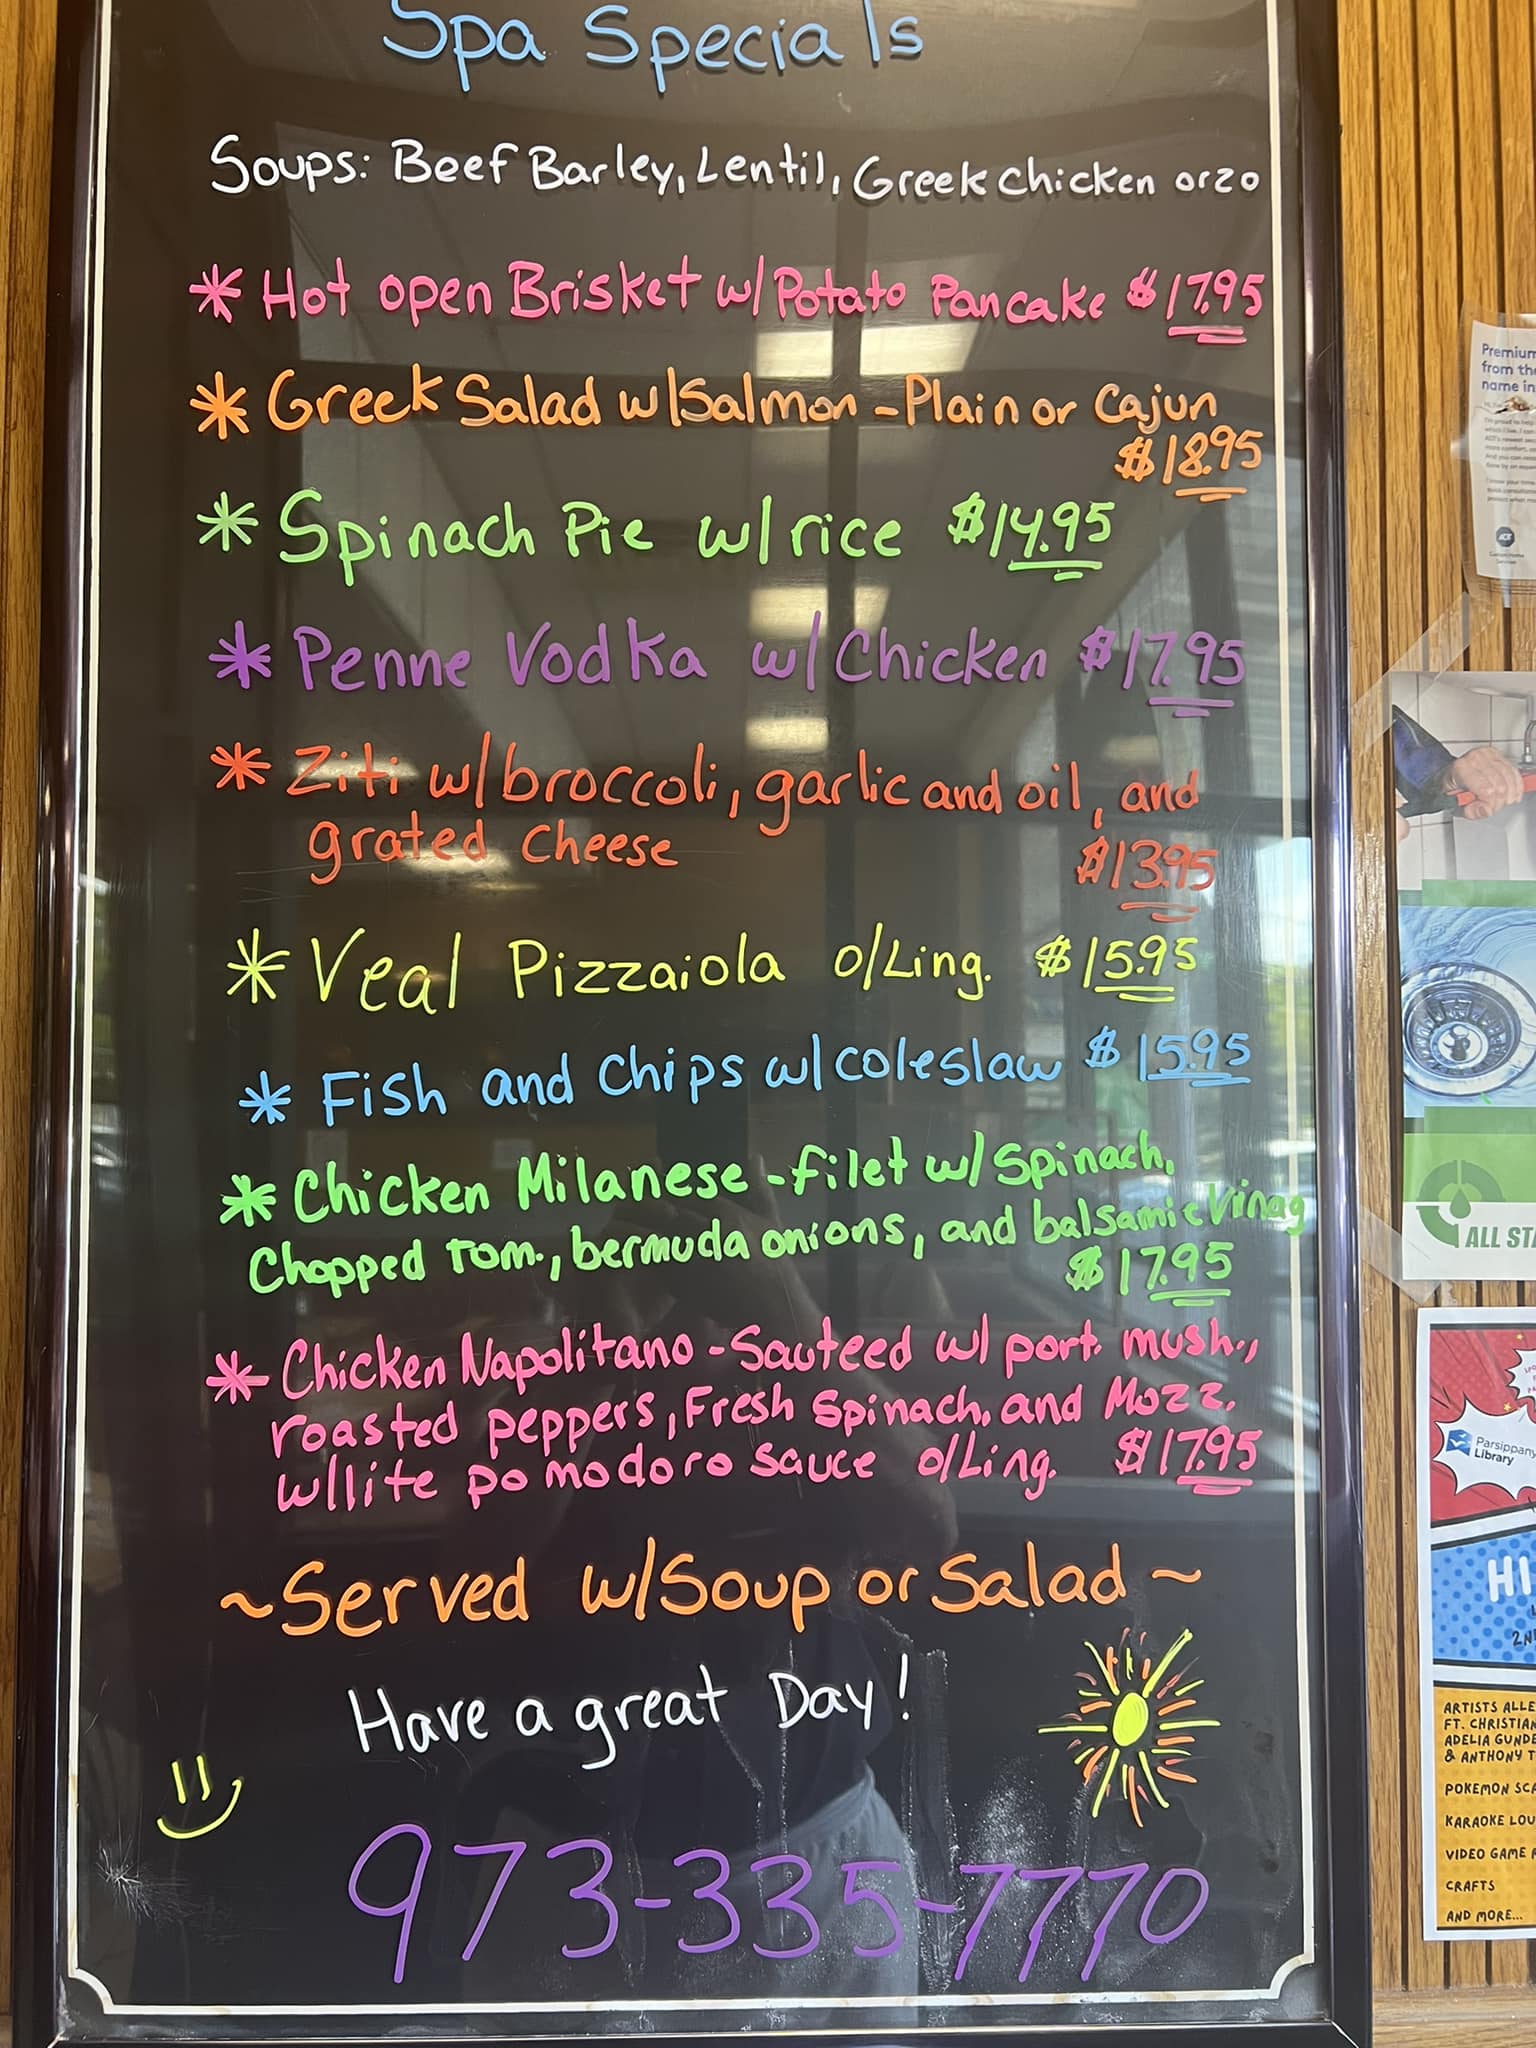 Spa Specials
Soups: Beef Barley, Lentil, Greek Chicken orzo
* Hot open Brisket w/Potato Pancake $17.95
* Greek Salad w/Salmon - Plain or Cajun
$18.95
* Spinach Pie w/rice $14.95
* Penne Vodka w/Chicken $17.95
* Ziti w/broccoli, garlic and oil, and
grated cheese $13.95
* Veal Pizzaiola o/Ling. $15.95
* Fish and Chips w/coleslaw $15.95
* Chicken Milanese - filet w/spinach,
Chopped Tom., bermuda onions, and balsamic Vinag
$17.95
* Chicken Napolitano - Sauteed w/ port. mush.,
roasted peppers, Fresh spinach, and Mozz.
w/lite pomodoro sauce o/Ling. $17.95
~Served w/Soup or Salad~
Have a great Day!
973-335-7770
Premium
from the
name in
ADT
ALL STA
Parsippany
Library
HI
2N
ARTISTS ALLE
FT. CHRISTIAN
ADELIA GUNDE
& ANTHONY T
POKEMON SCA
KARAOKE LOU
VIDEO GAME
CRAFTS
AND MORE...